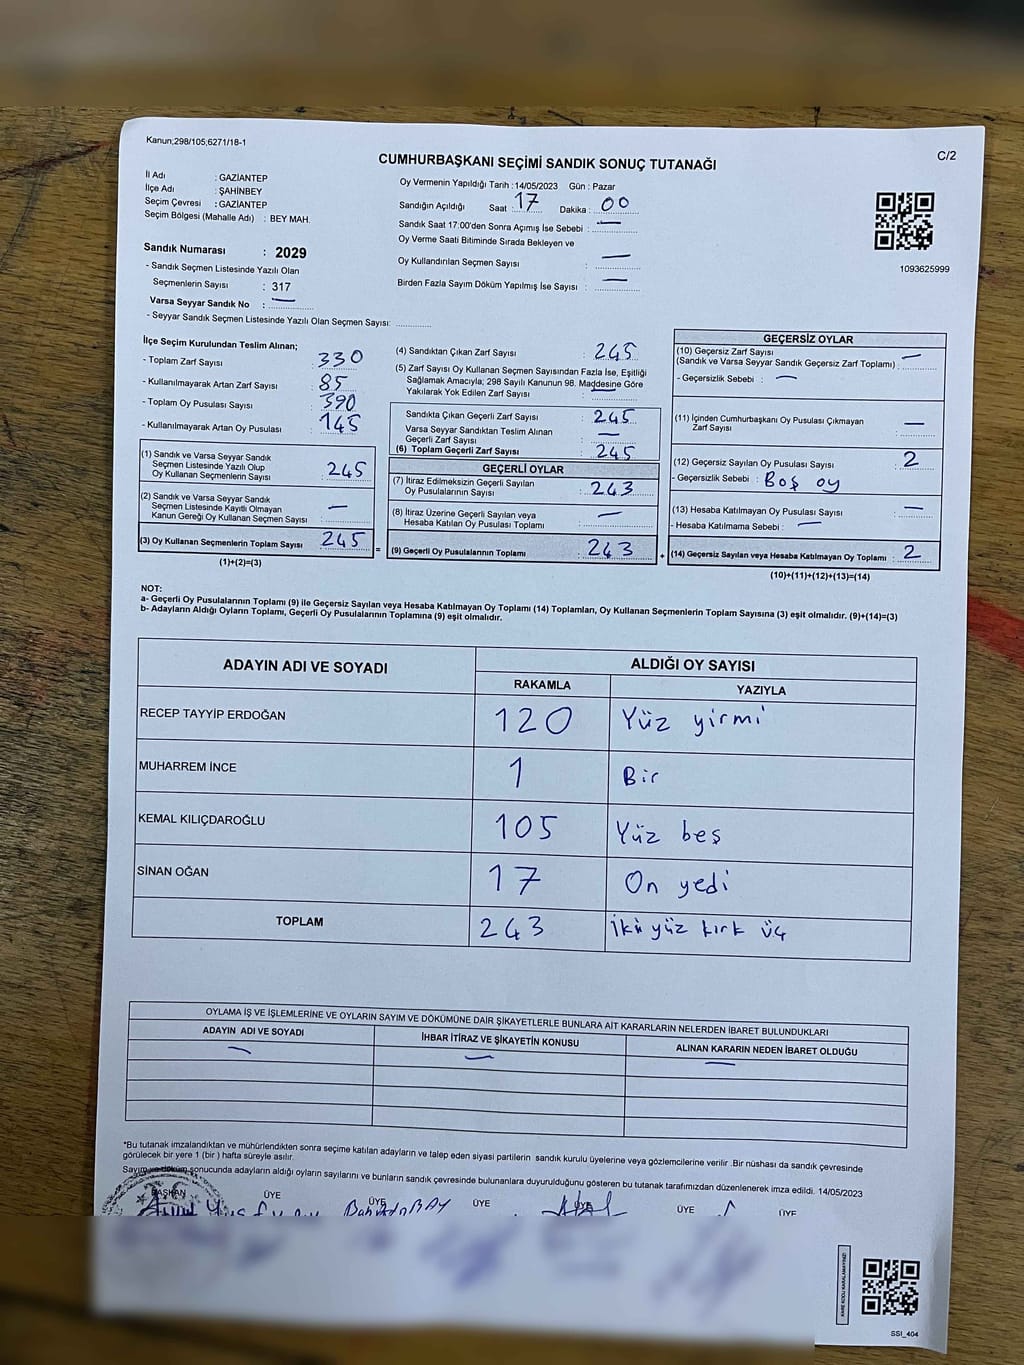 Kanun;298/105;6271/18-1
CUMHURBAŞKANI SEÇİMİ SANDIK SONUÇ TUTANAĞI
C/2
İl Adı : GAZİANTEP
İlçe Adı : ŞAHİNBEY
Seçim Çevresi : GAZİANTEP
Seçim Bölgesi (Mahalle Adı) : BEY MAH.
Sandık Numarası : 2029
- Sandık Seçmen Listesinde Yazılı Olan
Seçmenlerin Sayısı : 317
Varsa Seyyar Sandık No : —
- Seyyar Sandık Seçmen Listesinde Yazılı Olan Seçmen Sayısı:
Oy Vermenin Yapıldığı Tarih : 14/05/2023 Gün : Pazar
Sandığın Açıldığı Saat : 17 Dakika : 00
Sandık Saat 17:00'den Sonra Açımış İse Sebebi : —
Oy Verme Saati Bitiminde Sırada Bekleyen ve
Oy Kullandırılan Seçmen Sayısı : —
Birden Fazla Sayım Döküm Yapılmış İse Sayısı : —
1093625999
İlçe Seçim Kurulundan Teslim Alınan;
- Toplam Zarf Sayısı : 330
- Kullanılmayarak Artan Zarf Sayısı : 85
- Toplam Oy Pusulası Sayısı : 390
- Kullanılmayarak Artan Oy Pusulası : 145
(1) Sandık ve Varsa Seyyar Sandık
Seçmen Listesinde Yazılı Olup
Oy Kullanan Seçmenlerin Sayısı : 245
(2) Sandık ve Varsa Seyyar Sandık
Seçmen Listesinde Kayıtlı Olmayan
Kanun Gereği Oy Kullanan Seçmen Sayısı : —
(3) Oy Kullanan Seçmenlerin Toplam Sayısı : 245
(1)+(2)=(3)
(4) Sandıktan Çıkan Zarf Sayısı : 245
(5) Zarf Sayısı Oy Kullanan Seçmen Sayısından Fazla İse, Eşitliği
Sağlamak Amacıyla; 298 Sayılı Kanunun 98. Maddesine Göre
Yakılarak Yok Edilen Zarf Sayısı : —
Sandıkta Çıkan Geçerli Zarf Sayısı : 245
Varsa Seyyar Sandıktan Teslim Alınan
Geçerli Zarf Sayısı : —
(6) Toplam Geçerli Zarf Sayısı : 245
GEÇERLİ OYLAR
(7) İtiraz Edilmeksizin Geçerli Sayılan
Oy Pusulalarının Sayısı : 243
(8) İtiraz Üzerine Geçerli Sayılan veya
Hesaba Katılan Oy Pusulası Toplamı : —
= (9) Geçerli Oy Pusulalarının Toplamı : 243
GEÇERSİZ OYLAR
(10) Geçersiz Zarf Sayısı
(Sandık ve Varsa Seyyar Sandık Geçersiz Zarf Toplamı) : —
- Geçersizlik Sebebi : —
(11) İçinden Cumhurbaşkanı Oy Pusulası Çıkmayan
Zarf Sayısı : —
(12) Geçersiz Sayılan Oy Pusulası Sayısı : 2
- Geçersizlik Sebebi : Boş oy
(13) Hesaba Katılmayan Oy Pusulası Sayısı : —
- Hesaba Katılmama Sebebi : —
+ (14) Geçersiz Sayılan veya Hesaba Katılmayan Oy Toplamı : 2
(10)+(11)+(12)+(13)=(14)
NOT:
a- Geçerli Oy Pusulalarının Toplamı (9) ile Geçersiz Sayılan veya Hesaba Katılmayan Oy Toplamı (14) Toplamları, Oy Kullanan Seçmenlerin Toplam Sayısına (3) eşit olmalıdır. (9)+(14)=(3)
b- Adayların Aldığı Oyların Toplamı, Geçerli Oy Pusulalarının Toplamına (9) eşit olmalıdır.
ADAYIN ADI VE SOYADI ALDIĞI OY SAYISI
RAKAMLA YAZIYLA
RECEP TAYYİP ERDOĞAN 120 Yüz yirmi
MUHARREM İNCE 1 Bir
KEMAL KILIÇDAROĞLU 105 Yüz beş
SİNAN OĞAN 17 On yedi
TOPLAM 243 İki yüz kırk üç
OYLAMA İŞ VE İŞLEMLERİNE VE OYLARIN SAYIM VE DÖKÜMÜNE DAİR ŞİKAYETLERLE BUNLARA AİT KARARLARIN NELERDEN İBARET BULUNDUKLARI
ADAYIN ADI VE SOYADI İHBAR İTİRAZ VE ŞİKAYETİN KONUSU ALINAN KARARIN NEDEN İBARET OLDUĞU
— — —
*Bu tutanak imzalandıktan ve mühürlendikten sonra seçime katılan adayların ve talep eden siyasi partilerin sandık kurulu üyelerine veya gözlemcilerine verilir .Bir nüshası da sandık çevresinde
görülecek bir yere 1 (bir ) hafta süreyle asılır.
Sayım ve döküm sonucunda adayların aldığı oyların sayılarını ve bunların sandık çevresinde bulunanlara duyurulduğunu gösteren bu tutanak tarafımızdan düzenlenerek imza edildi. 14/05/2023
BAŞKAN ÜYE ÜYE ÜYE ÜYE ÜYE ÜYE
SSI_404